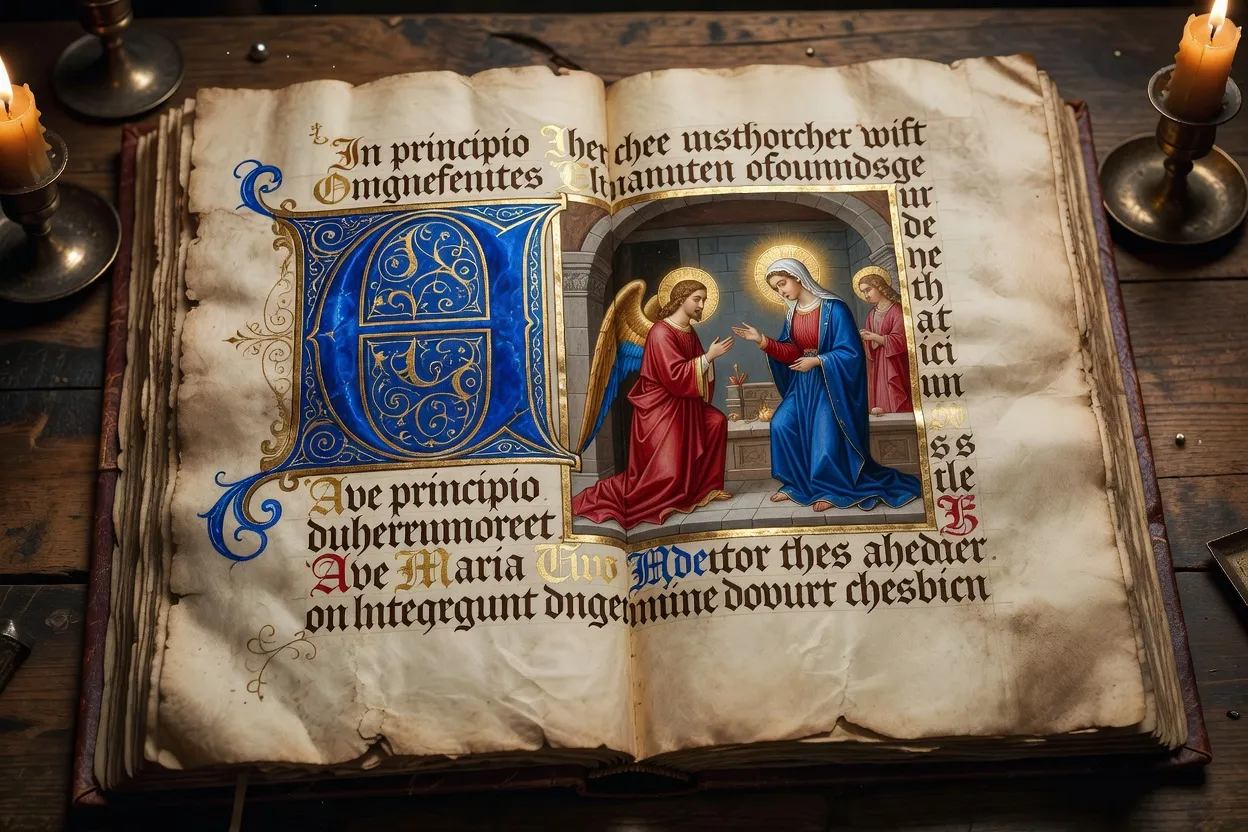 In principio Iher chee msthorcher wift
Omgnefenites Eltnannten ofoumndsge
ur
de
ne
th
at
ici
un
ss
tle
B
Ave principio
duherrumoreet
Ave Maria Uivo Mdettor thes ahedier
on Integrgunt dngenmine dovurt chesbicn